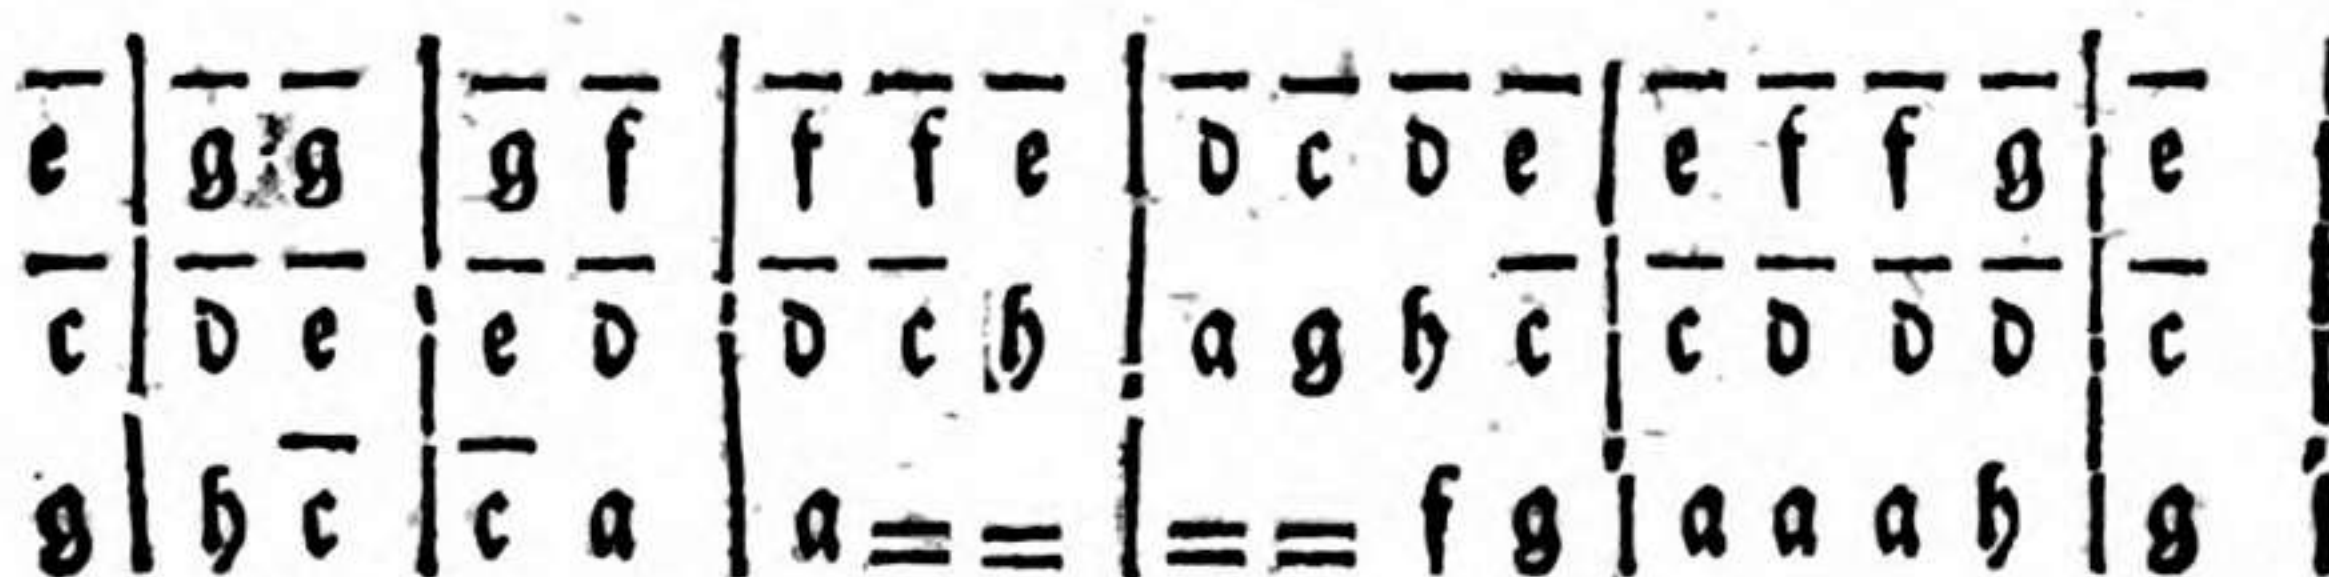 e̅ | g̅ g̅ | g̅ f̅ | f̅ f̅ e̅ | d̅ c̅ d̅ e̅ | e̅ f̅ f̅ g̅ | e̅ |
c̅ | d̅ e̅ | e̅ d̅ | d̅ c̅ h | a g h c̅ | c̅ d̅ d̅ d̅ | c̅ |
g | h c̅ | c̅ a | a = = | = = f g | a a a h | g |